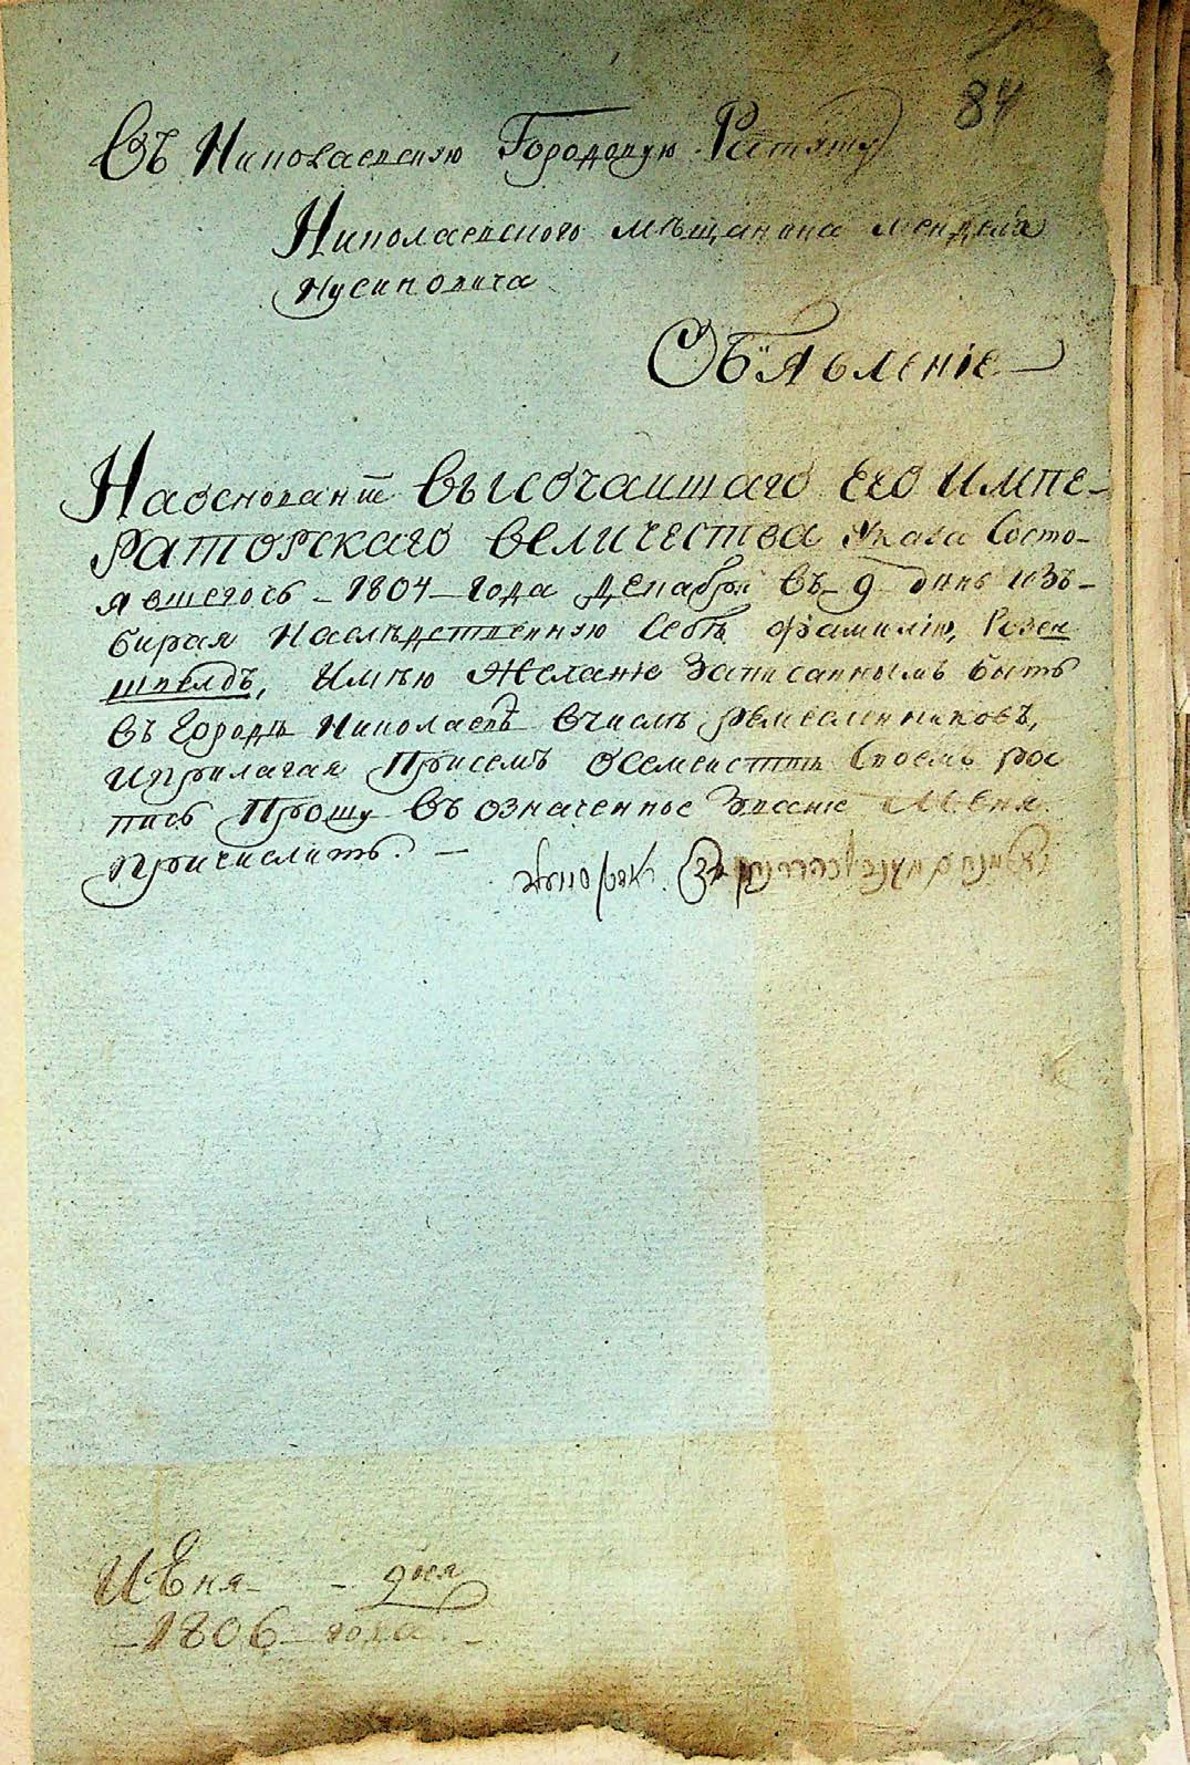 84
Въ Николаевскую Городовую Ратушу
Николаевского мѣщанина Менделя
Нусиновича
Объявленіе
На основаніи ВЫСОЧАЙШАГО ЕГО ИМПЕ-
РАТОРСКАГО ВЕЛИЧЕСТВА Указа Состо-
явшегось - 1804 - года Декабря въ - 9 - день изъ-
бирая Наслѣдственную Себѣ фамилію, Розен
швелдъ, Имѣю Желаніе Записаннымъ быть
въ Городѣ Николаевѣ в числѣ ремесленниковъ,
и прилагая При семъ о семействѣ Своемъ рос
пись Прошу въ означенное Званіе Меня
причислить. -
Июня - - дня
- 1806 - года -